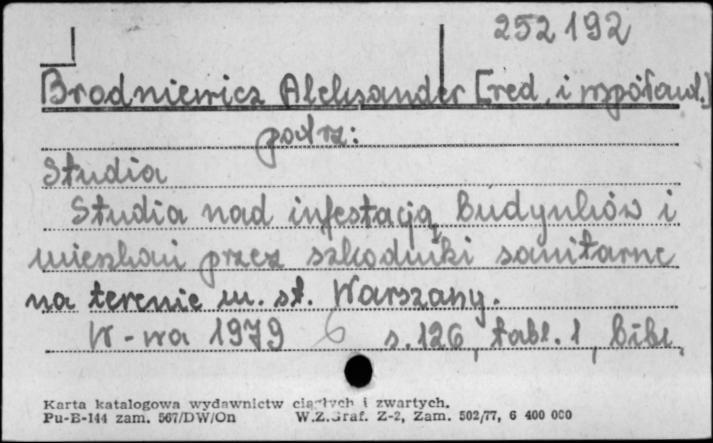 252192
Brodniewicz Aleksander [red. i współaut.]
podrz:
Studia
Studia nad infestacją budynków i
mieszkań przez szkodniki sanitarne
na terenie m. st. Warszawy.
W-wa 1979 6 s. 126, tabl. 1, bibl.
Karta katalogowa wydawnictw ciągłych i zwartych.
Pu-B-144 zam. 567/DW/On W.Z.Graf. Z-2, Zam. 502/77, 6 400 000